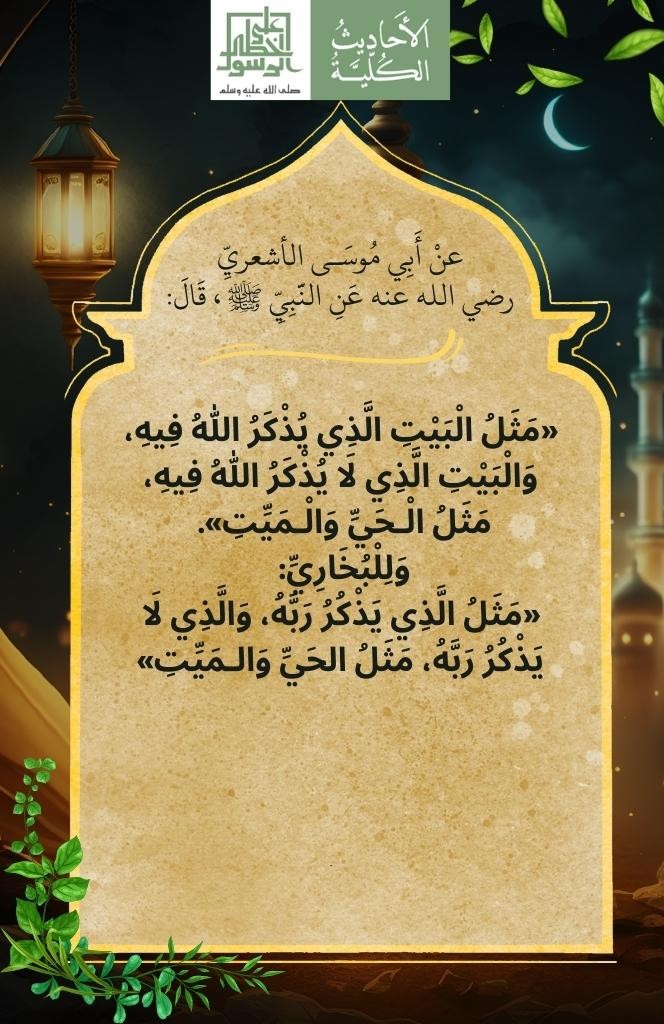 على خطى الرسول
صلى الله عليه وسلم
الأَحَادِيثُ
الكُلِّيَّةُ
عنْ أَبِي مُوسَـى الأشعريّ
رضي الله عنه عَنِ النَّبِيِّ ﷺ، قَالَ:
«مَثَلُ الْبَيْتِ الَّذِي يُذْكَرُ اللهُ فِيهِ،
وَالْبَيْتِ الَّذِي لَا يُذْكَرُ اللهُ فِيهِ،
مَثَلُ الْـحَيِّ وَالْـمَيِّتِ».
وَلِلْبُخَارِيِّ:
«مَثَلُ الَّذِي يَذْكُرُ رَبَّهُ، وَالَّذِي لَا
يَذْكُرُ رَبَّهُ، مَثَلُ الحَيِّ وَالـمَيِّتِ»